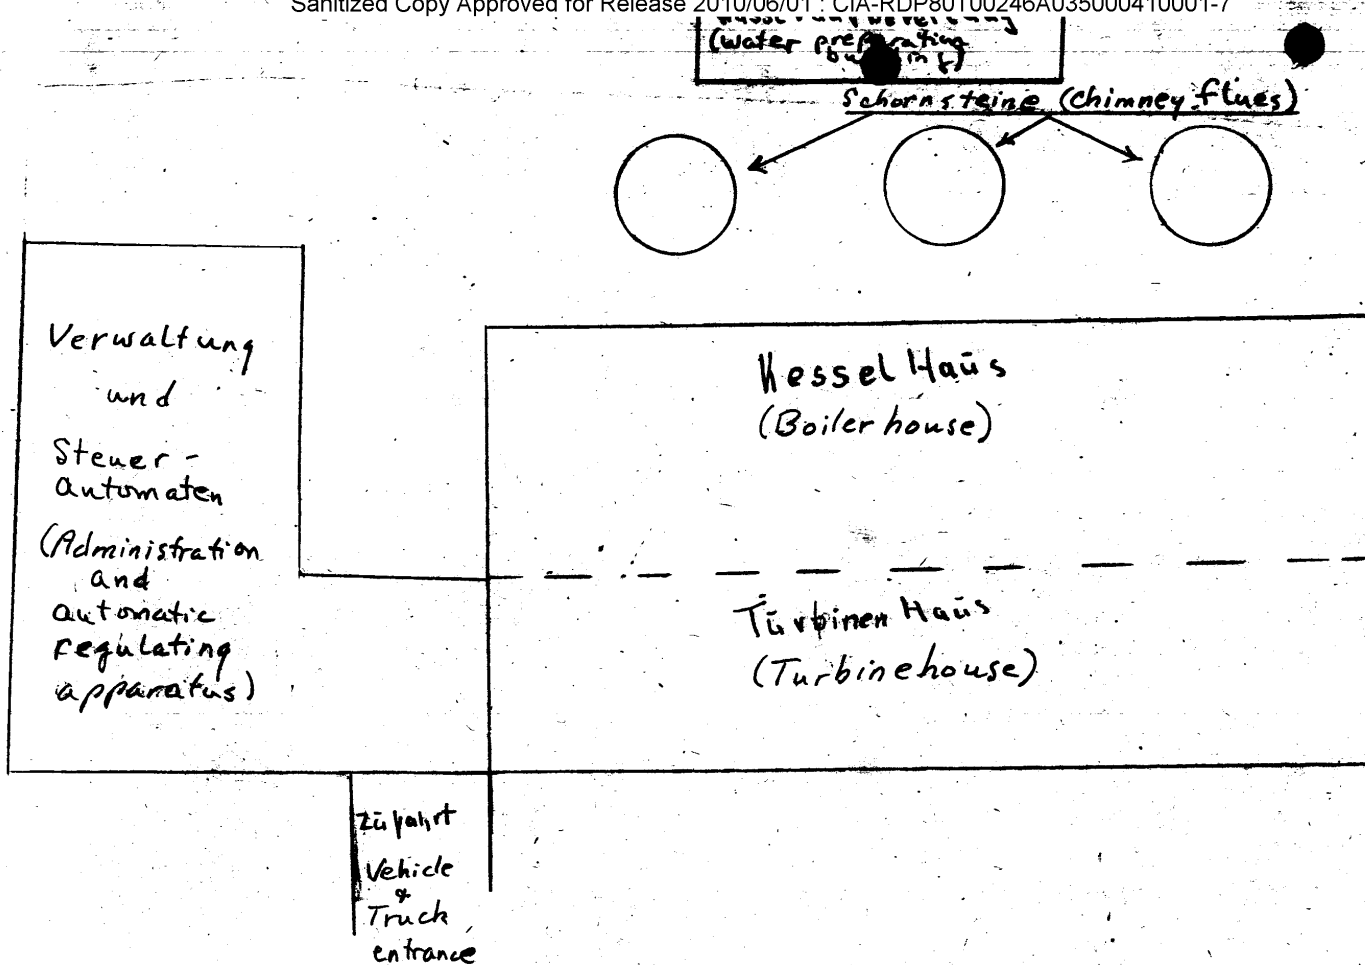 Sanitized Copy Approved for Release 2010/06/01 : CIA-RDP80T00246A035000410001-7
(water preparating
Schornsteine (chimney flues)
Verwaltung
und
Steuer-
automaten
(Administration
and
automatic
regulating
apparatus)
Kessel Haūs
(Boiler house)
Tūrbinen Haūs
(Turbinehouse)
Zūfahrt
Vehicle
&
Truck
entrance